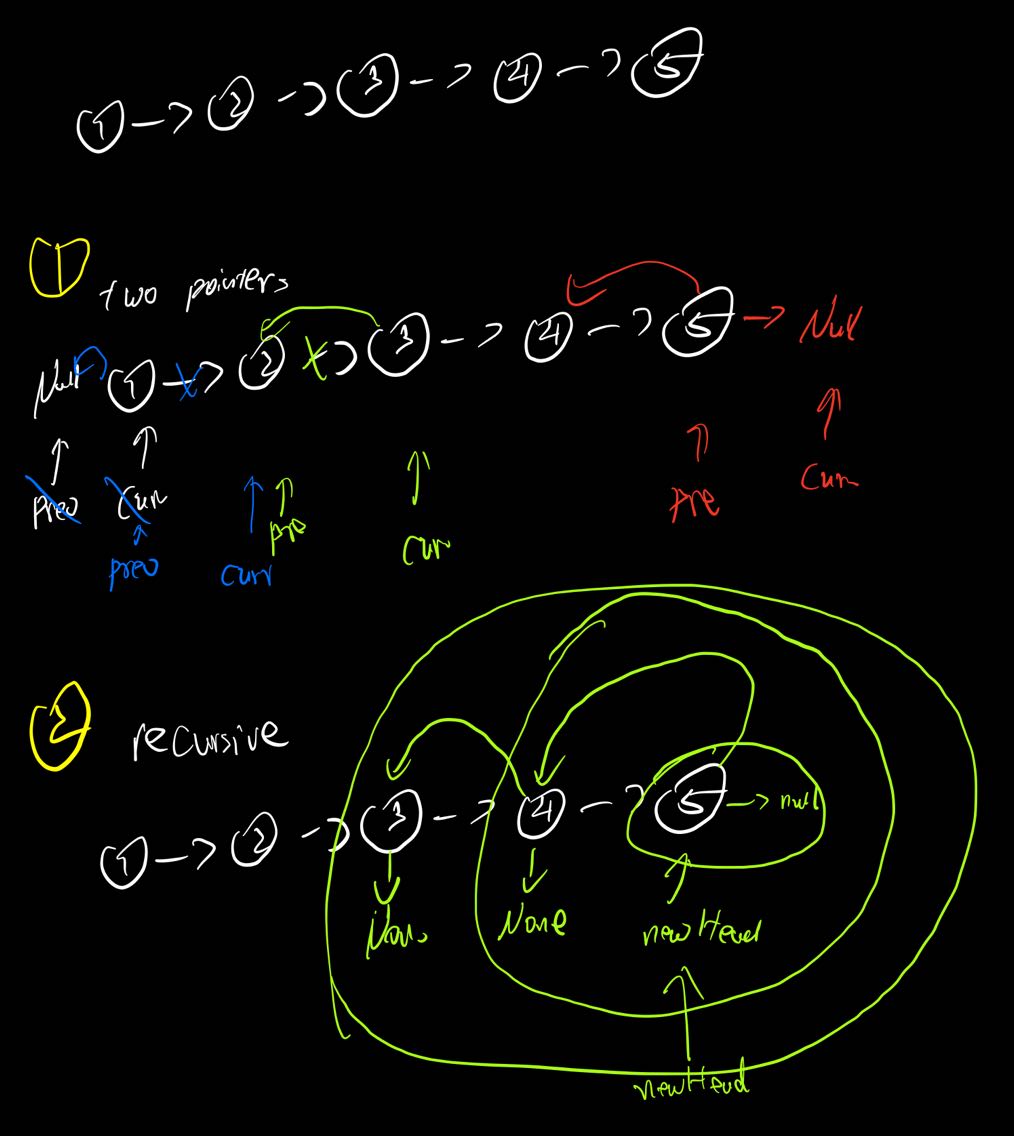 1 -> 2 -> 3 -> 4 -> 5
1 two pointers
Null 1 -> 2 -> 3 -> 4 -> 5 -> Null
Prev Curr Pre Cur
prev curr pre cur
2 recursive
1 -> 2 -> 3 -> 4 -> 5 -> null
None None newHead
newHead